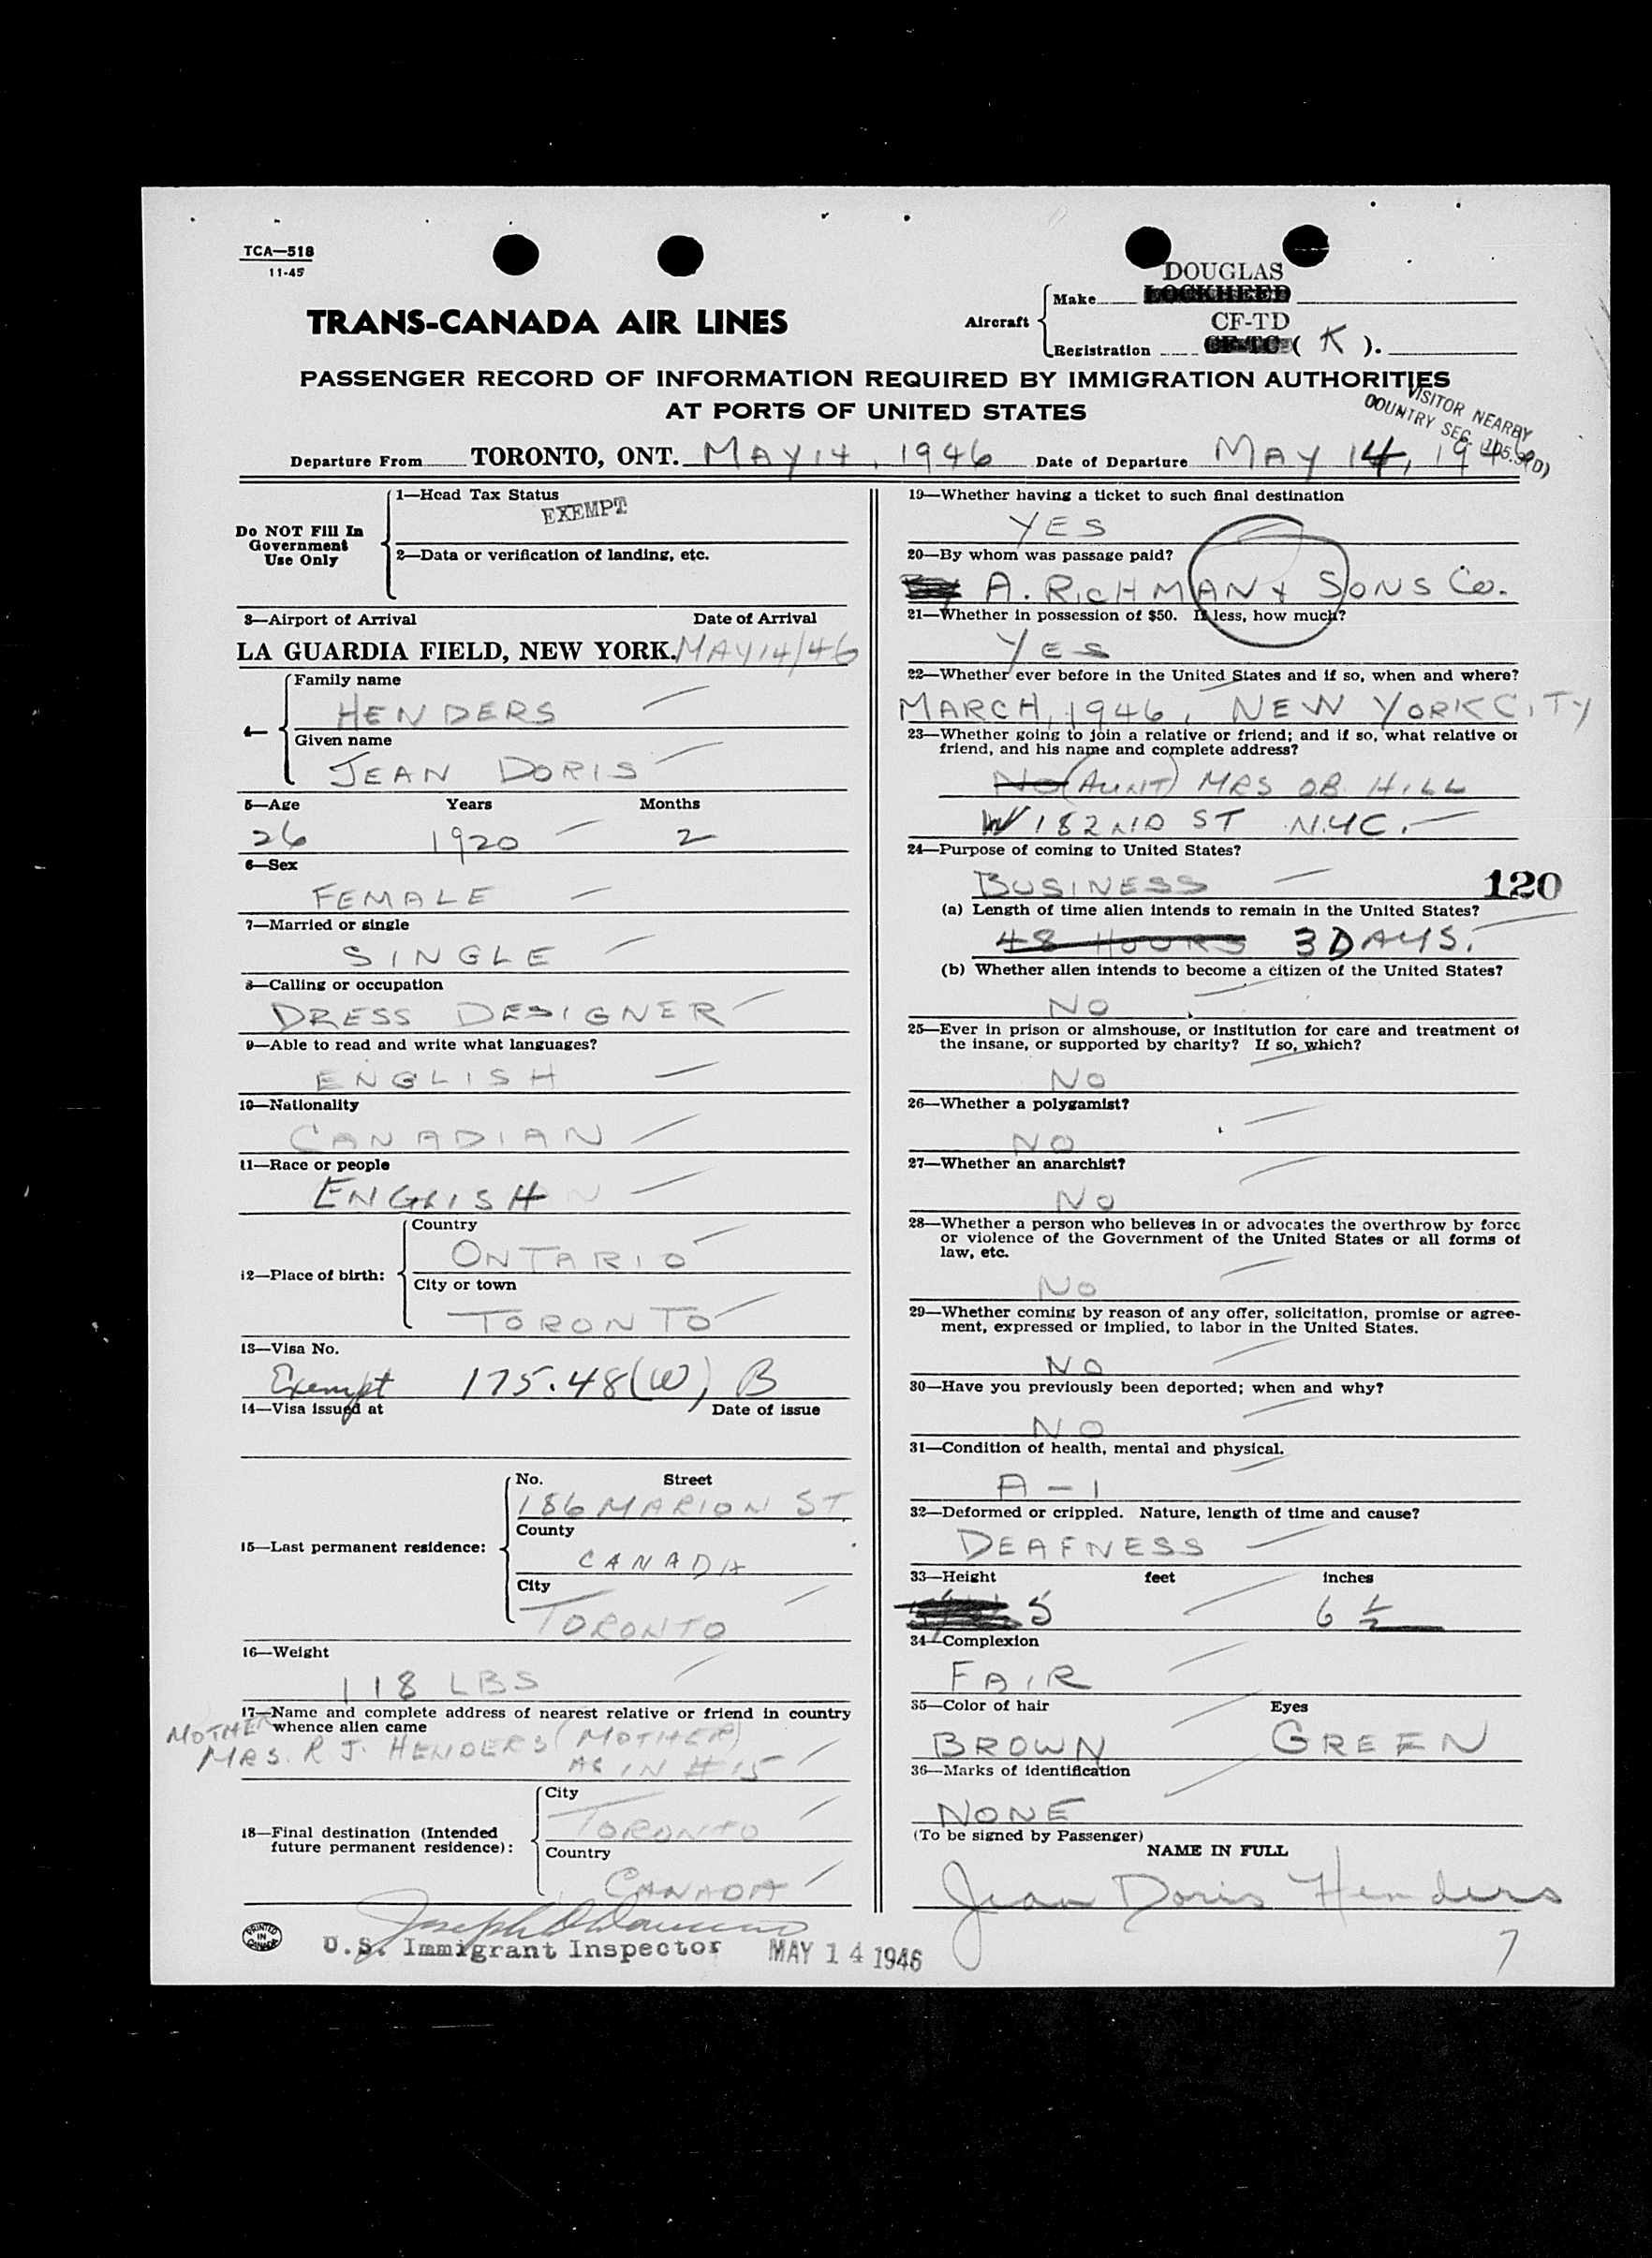 TCA—518
11-45
DOUGLAS
Make LOCKHEED
TRANS-CANADA AIR LINES
Aircraft
CF-TD
Registration CF-TC ( K ).
PASSENGER RECORD OF INFORMATION REQUIRED BY IMMIGRATION AUTHORITIES
AT PORTS OF UNITED STATES
VISITOR NEARBY
COUNTRY SEC.
Departure From TORONTO, ONT. MAY 14, 1946 Date of Departure MAY 14, 1946
Do NOT Fill In
Government
Use Only
1—Head Tax Status
EXEMPT
2—Data or verification of landing, etc.
3—Airport of Arrival Date of Arrival
LA GUARDIA FIELD, NEW YORK. MAY 14/46
4—
Family name
HENDERS
Given name
JEAN DORIS
5—Age Years Months
26 1920 2
6—Sex
FEMALE
7—Married or single
SINGLE
8—Calling or occupation
DRESS DESIGNER
9—Able to read and write what languages?
ENGLISH
10—Nationality
CANADIAN
11—Race or people
ENGLISH
12—Place of birth:
Country
ONTARIO
City or town
TORONTO
13—Visa No.
Exempt 175.48(W) B
14—Visa issued at Date of issue
15—Last permanent residence:
No. Street
186 MARION ST.
County
CANADA
City
TORONTO
16—Weight
118 LBS
17—Name and complete address of nearest relative or friend in country
whence alien came
MOTHER
MRS. R J. HENDERS (MOTHER)
AS IN #15
18—Final destination (Intended
future permanent residence):
City
TORONTO
Country
CANADA
U.S. Immigrant Inspector MAY 14 1946
PRINTED
IN
CANADA
19—Whether having a ticket to such final destination
YES
20—By whom was passage paid?
A. RICHMAN & SONS CO.
21—Whether in possession of $50. If less, how much?
YES
22—Whether ever before in the United States and if so, when and where?
MARCH, 1946, NEW YORK CITY
23—Whether going to join a relative or friend; and if so, what relative or
friend, and his name and complete address?
No (AUNT) MRS O.B. HILL
W 182ND ST N.Y.C.
24—Purpose of coming to United States?
BUSINESS
120
(a) Length of time alien intends to remain in the United States?
48 HOURS 3 DAYS.
(b) Whether alien intends to become a citizen of the United States?
NO
25—Ever in prison or almshouse, or institution for care and treatment of
the insane, or supported by charity? If so, which?
NO
26—Whether a polygamist?
NO
27—Whether an anarchist?
NO
28—Whether a person who believes in or advocates the overthrow by force
or violence of the Government of the United States or all forms of
law, etc.
NO
29—Whether coming by reason of any offer, solicitation, promise or agree-
ment, expressed or implied, to labor in the United States.
NO
30—Have you previously been deported; when and why?
NO
31—Condition of health, mental and physical.
A-1
32—Deformed or crippled. Nature, length of time and cause?
DEAFNESS
33—Height feet inches
5 6 1/2
34—Complexion
FAIR
35—Color of hair Eyes
BROWN GREEN
36—Marks of identification
NONE
(To be signed by Passenger)
NAME IN FULL
Jean Doris Henders
7